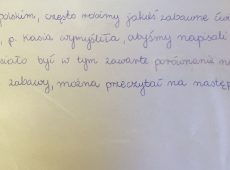 polskim, często robimy jakieś zabawne ćw
, p. Kasia wymyśliła, abyśmy napisali
iało być w tym zawarte porównanie
zabawy, można przeczytać na nastę